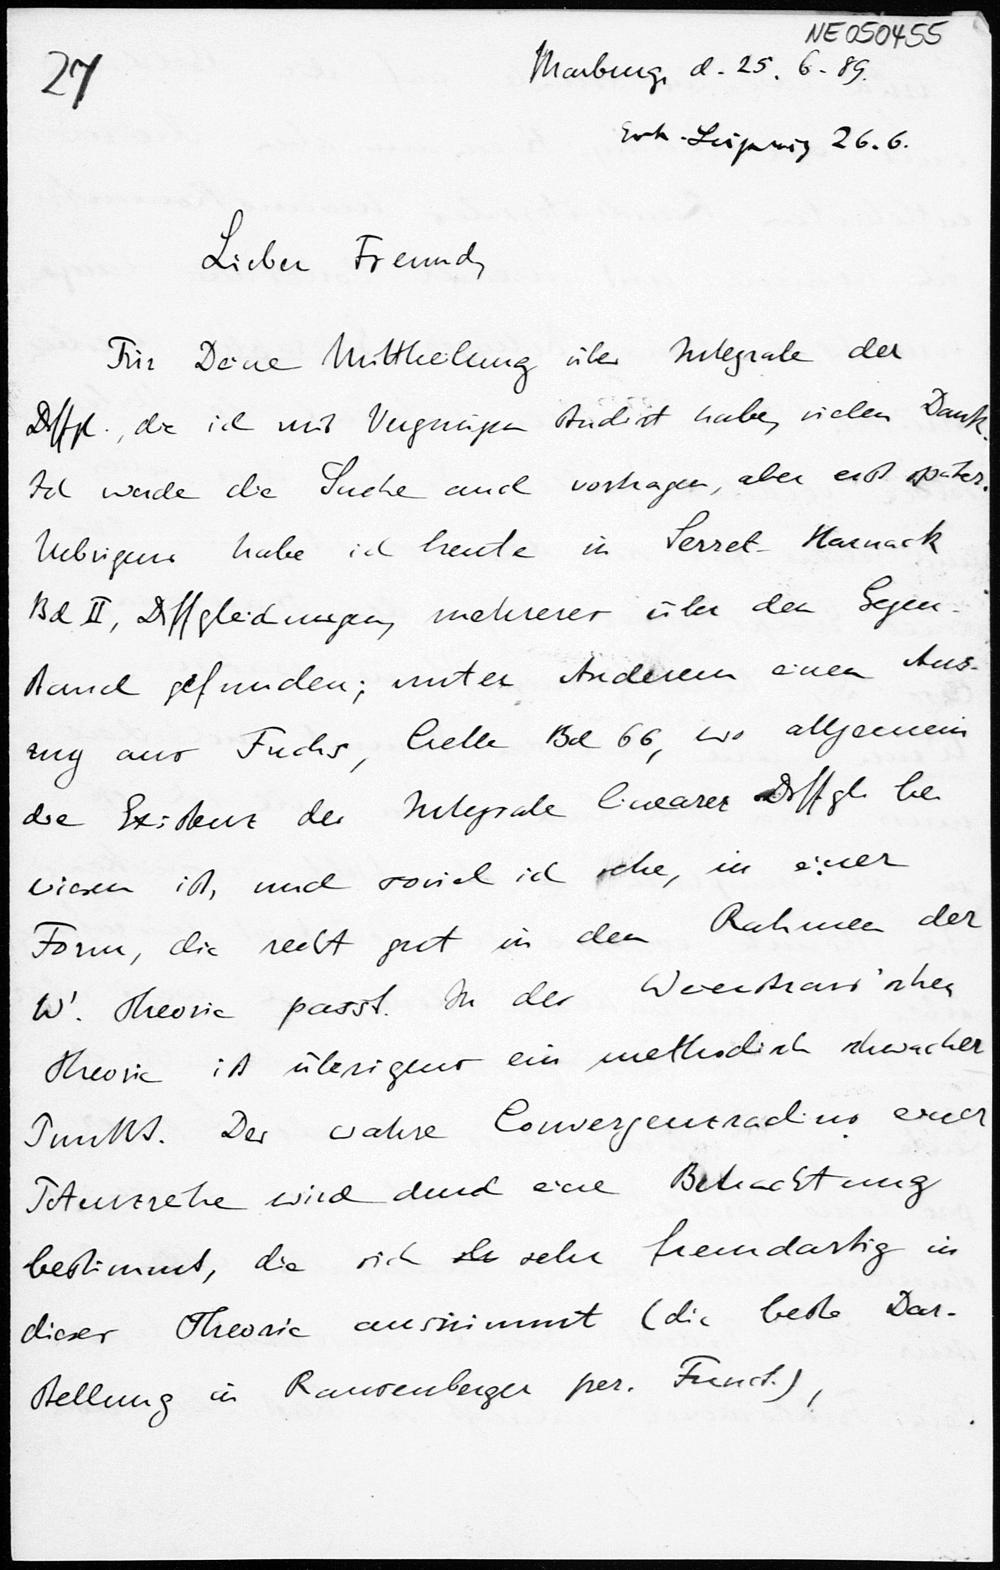 NE050455
27
Marburg, d. 25. 6. 89.
Erh. Leipzig 26.6.
Lieber Freund,
Für Deine Mittheilung über Integrale der
Dffgl., die ich mit Vergnügen studirt habe, vielen Dank.
Ich werde die Sache auch vortragen, aber erst später.
Uebrigens habe ich heute in Serret-Harnack
Bd II, Dffgleichungen, mehreres über den Gegen-
stand gefunden; unter Anderem einen Aus-
zug aus Fuchs, Crelle Bd 66, wo allgemein
die Existenz der Integrale linearer Dffgl be
wiesen ist, und soviel ich sehe, in einer
Form, die recht gut in den Rahmen der
W'. Theorie passt. In der Weierstrass'schen
Theorie ist übrigens ein methodisch schwacher
Punkt. Der wahre Convergenzradius einer
Potenzreihe wird durch eine Betrachtung
bestimmt, die sich sehr fremdartig in
dieser Theorie ausnimmt (die beste Dar-
stellung in Rausenberger per. Funct.),